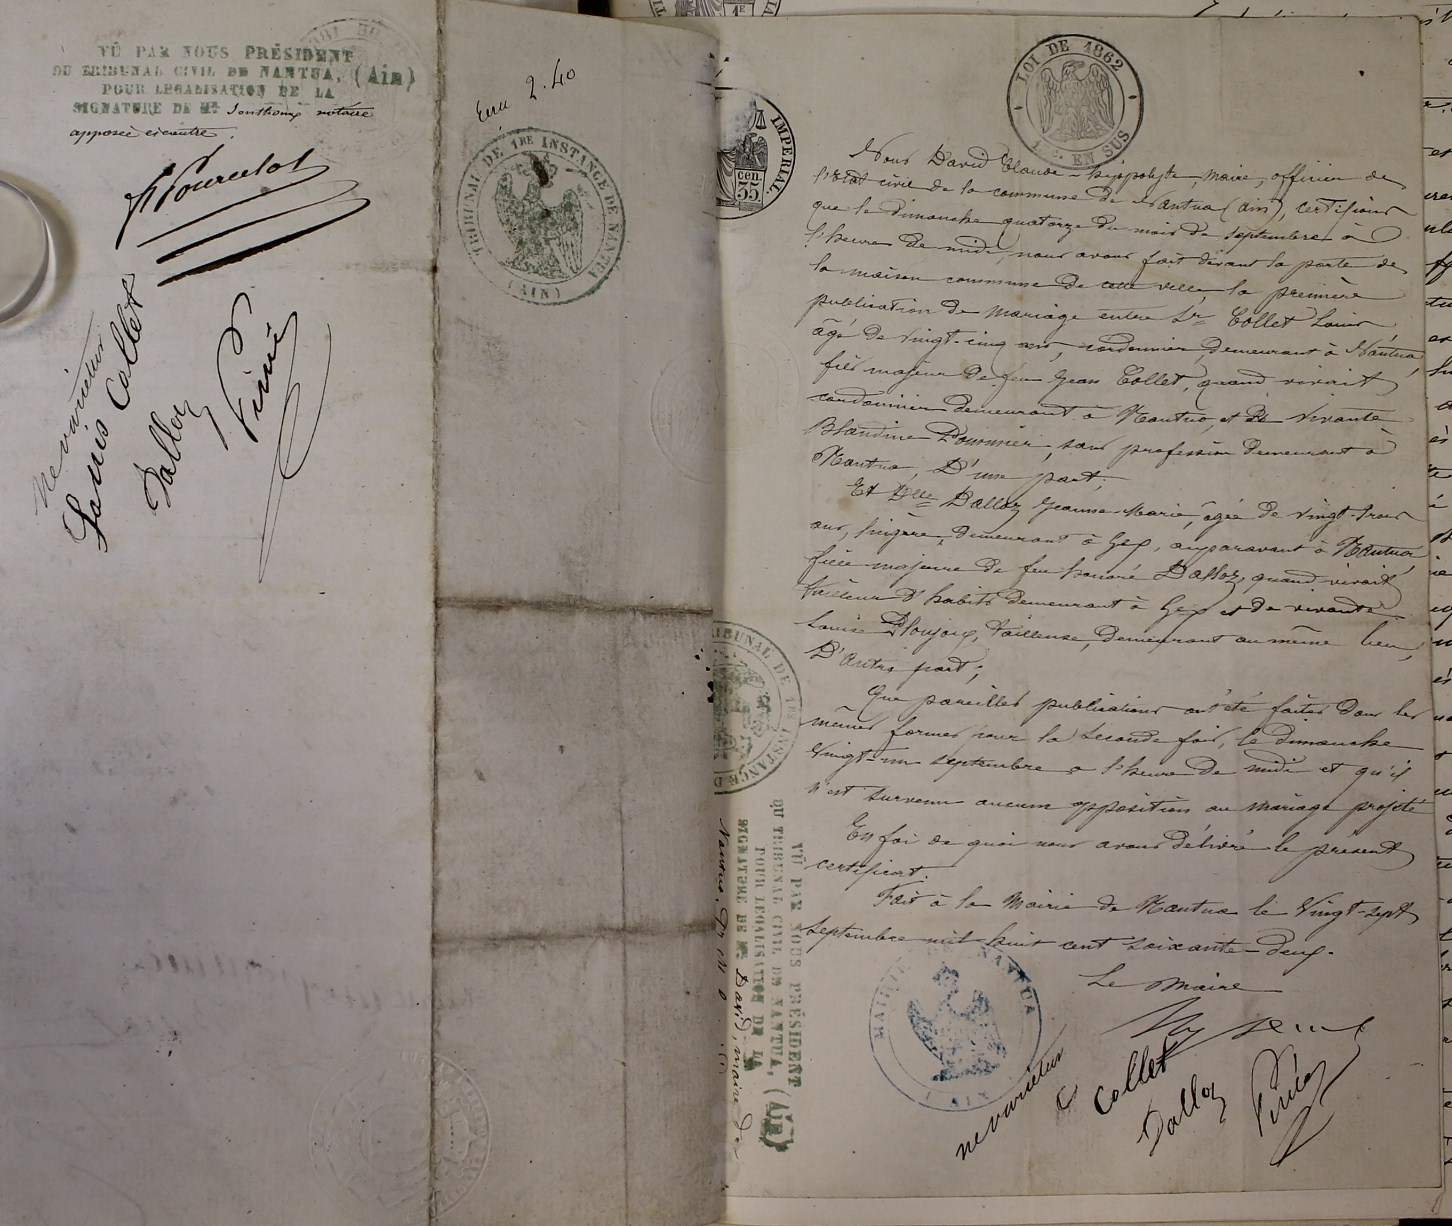 VÛ PAR NOUS PRÉSIDENT
DU TRIBUNAL CIVIL DE NANTUA, (Ain)
POUR LEGALISATION DE LA
SIGNATURE DE Me Jonthoux notaire
apposée ci contre.
Ne varietur
Louis Collet
Dalloz
2.40
TRIBUNAL DE 1RE INSTANCE DE NANTUA
(AIN)
IMPERIAL.
cen.
35.
LOI DE 1862
EN SUS
Nous David Claude-hippolyte, maire, officier de
l'état civil de la commune de Nantua (ain), certifions
que le dimanche quatorze du mois de septembre à
l'heure de midi, nous avons fait devant la porte de
la maison commune de cette ville, la première
publication de mariage entre Sr Collet Louis,
âgé de vingt-cinq ans, cordonnier, demeurant à Nantua,
fils majeur de feu Jean Collet, quand vivait
cordonnier demeurant à Nantua, et de vivante
Blandine, sans profession demeurant à
Nantua, D'une part;
Et Dlle Dalloz Jeanne-Marie, âgée de vingt-trois
ans, lingère, demeurant à Gex, auparavant à Nantua
fille majeure de feu honoré Dalloz, quand vivait
tailleur d'habits demeurant à Gex et de vivante
Louise, tailleuse, demeurant au même lieu,
D'autre part;
Que pareilles publications ont été faites dans les
mêmes formes pour la seconde fois, le dimanche
vingt-un septembre à l'heure de midi et qu'il
n'est survenu aucune opposition au mariage projeté
En foi de quoi nous avons délivré le présent
certificat.
Fait à la Mairie de Nantua le vingt-sept
septembre mil huit cent soixante-deux.
Le Maire
MAIRIE DE NANTUA
AIN
ne varietur
Collet
Dalloz
TRIBUNAL DE 1RE INSTANCE
VÛ PAR NOUS PRÉSIDENT
DU TRIBUNAL CIVIL DE NANTUA, (Ain)
POUR LEGALISATION DE LA
SIGNATURE DE Mr David, maire de
Nantua.